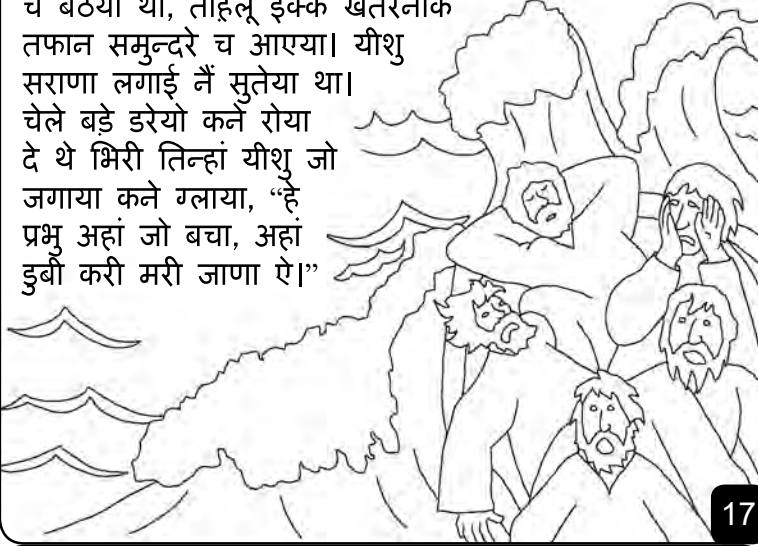 च बैठेया था, ताह्लू इक्क खतरनाक
तफान समुन्दरे च आएया। यीशु
सराणा लगाई नैं सुतेया था।
चेले बड़े डरेयो कने रोया
दे थे भिरी तिन्हां यीशु जो
जगाया कने ग्लाया, “हे
प्रभु अहां जो बचा, अहां
डुबी करी मरी जाणा ऐ।”
17